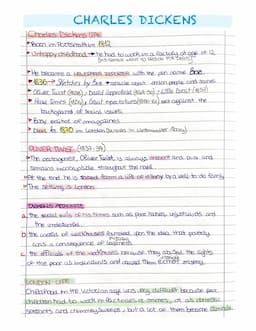 CHARLES DICKENS
Charles Dickens LIFE
Born in Portsmouth in 1812
Unhappy childhood → he had to work in a factory at age of 12
He became a newspaper reporter with the pen name Boz
1836 → Sketches by Boz
Oliver Twist (1838), David Copperfield (1849-50), Little Dorrit (1857)
Hard Times (1854), Great Expectations (1860-61) set against the
background of social issues
Busy editor of magazines
Died in 1870 in London (buried in Westminster Abbey)
OLIVER TWIST (1837-39)
The protagonist, Oliver Twist, is always innocent and pure and
remains incorruptible throughout the novel
At the end he is saved from a life of villainy by a well to do family
The setting is London
a. the social evils of his times such as poor houses, unjust courts and
the underworld
b. the world of workhouses founded upon the idea that poverty
was a consequence of laziness
c. the officials of the workhouses because they abused the rights
of the poor as individuals and caused them further misery
LONDON LIFE
Childhood in the Victorian age was very difficult because poor
children had to work in factories or mines, or as domestic
servants and chimney sweeps, but a lot of them became criminals